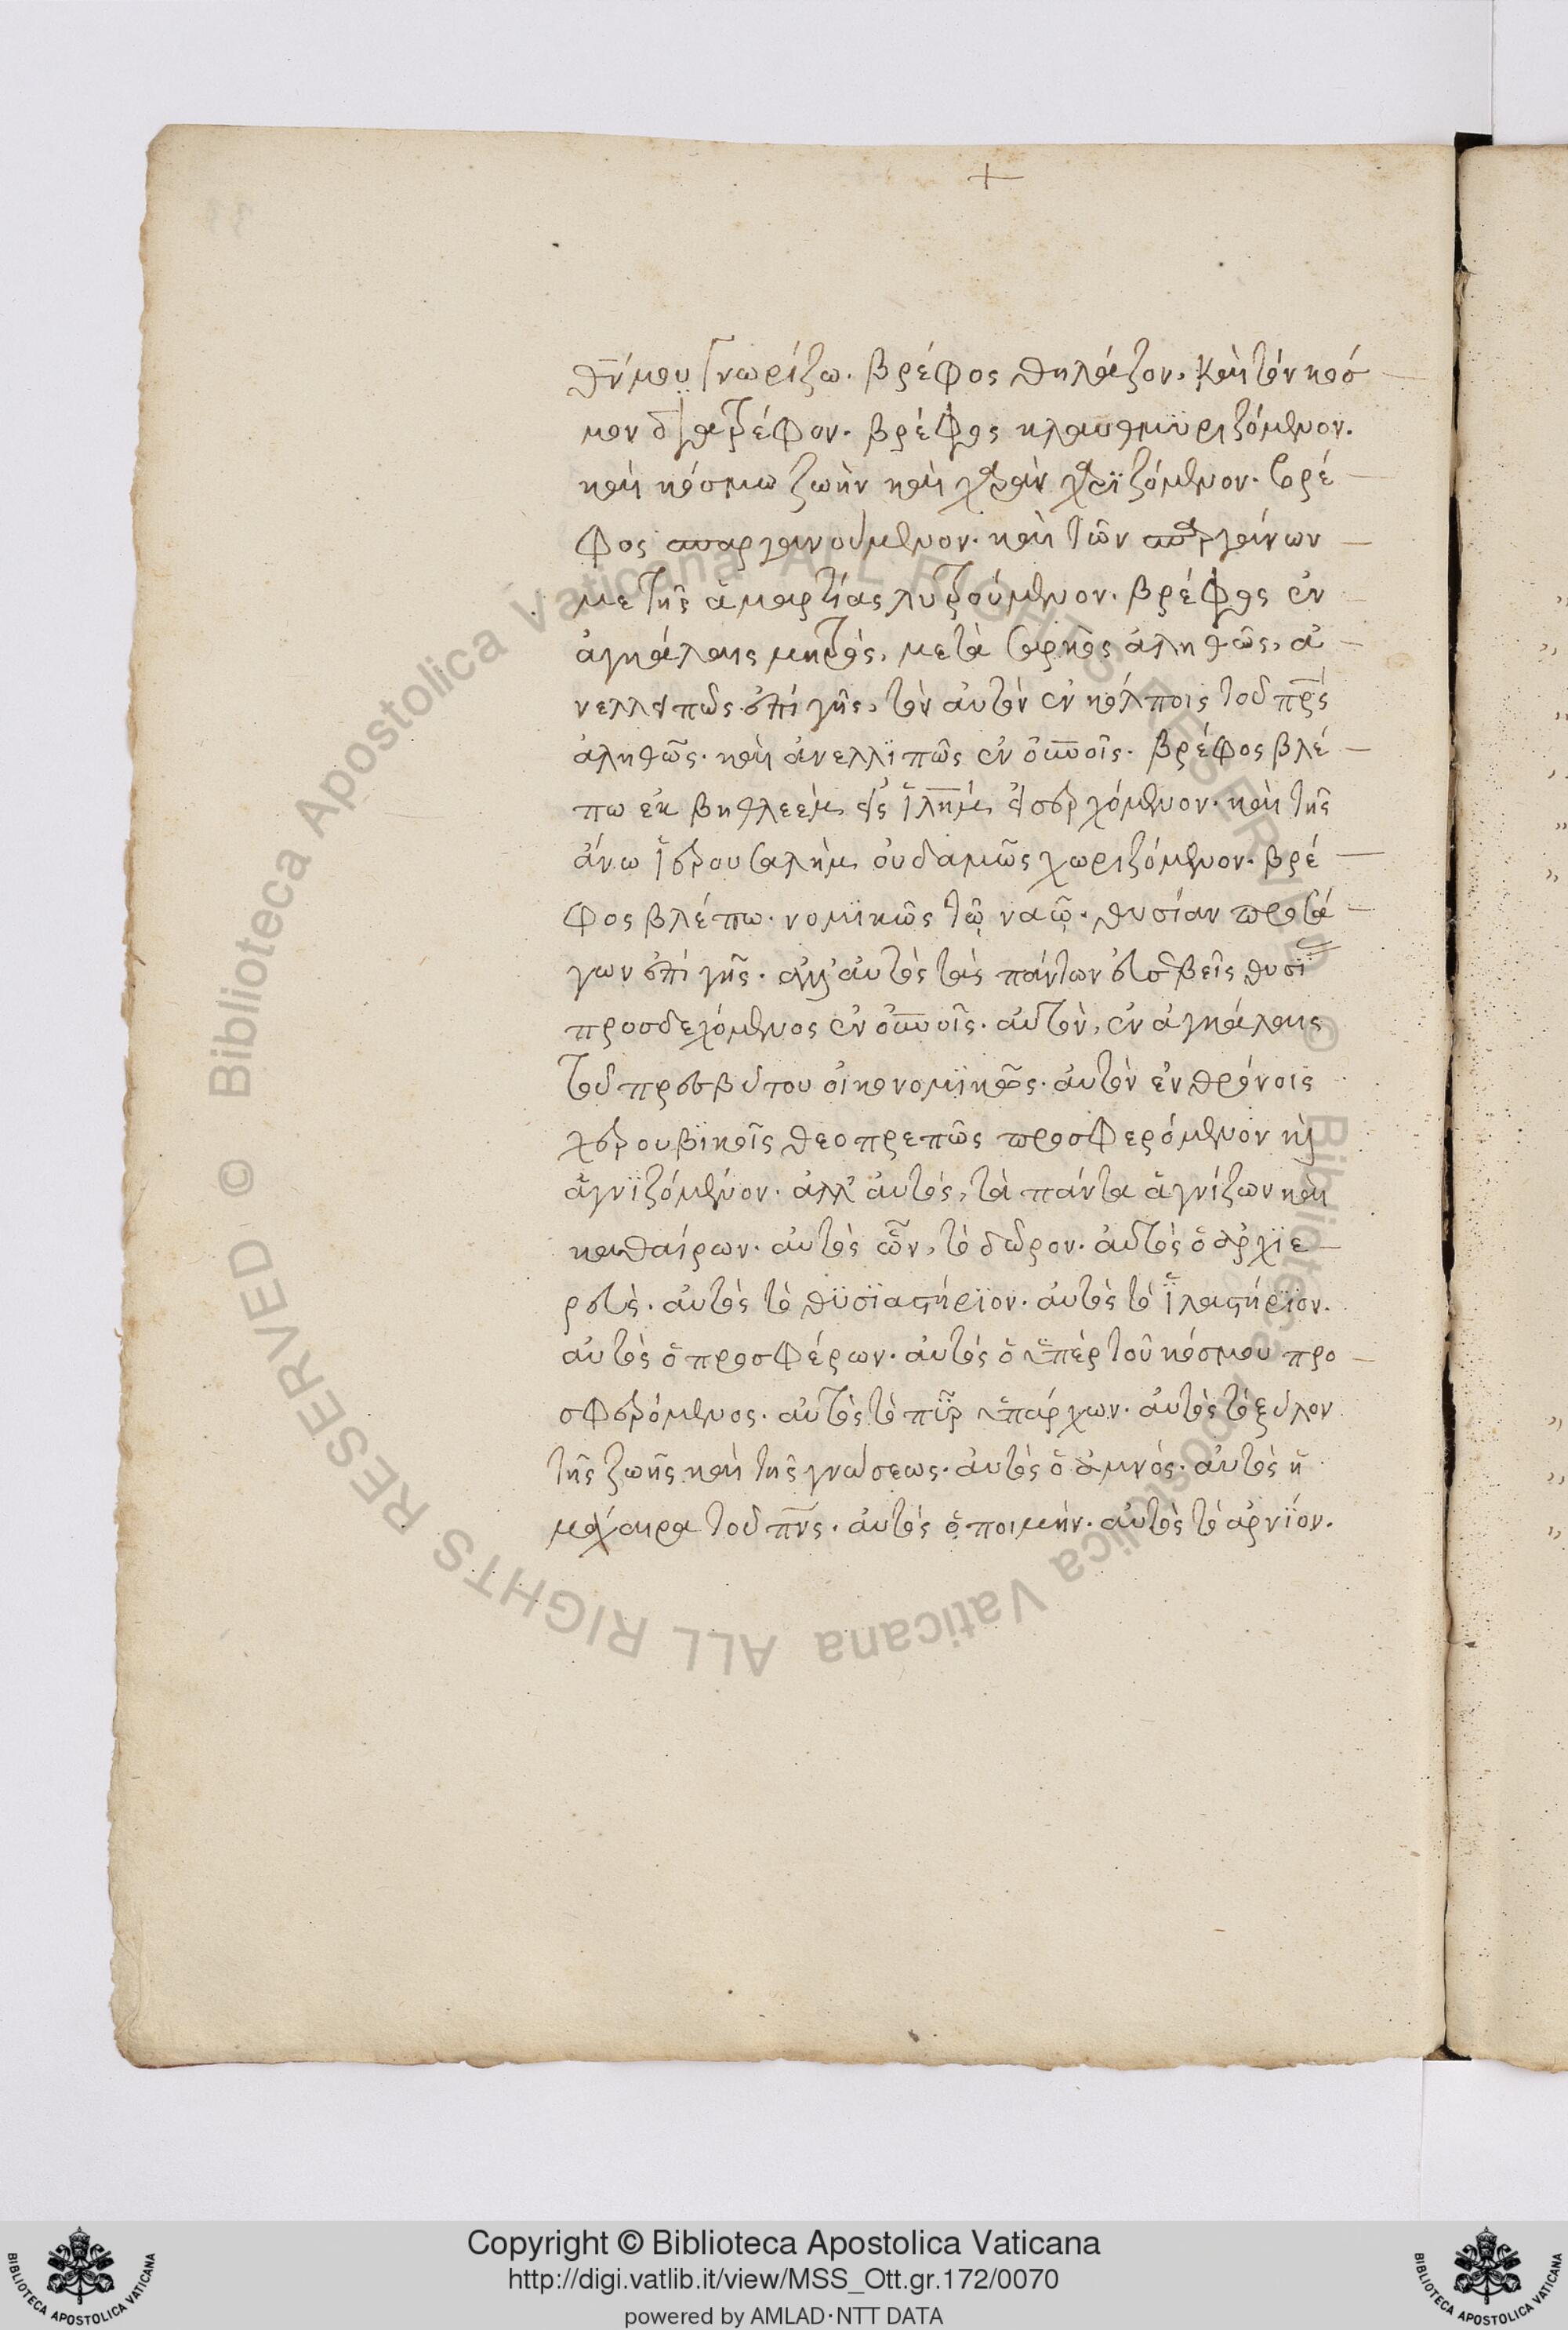 +
θν́ μου γνωρίζω. βρέφος θηλάζον, καὶ τὸν κόσ
μον διατρέφον. βρέφος κλαυθμϋριζόμενον.
καὶ κόσμω ζωὴν καὶ χαρὰν χαρϊζόμενον. βρέ
φος σπαργανούμενον. καὶ τῶν σπαργάνων
με τῆς ἁμαρτίας λυτρούμενον. βρέφος ἐν
ἀγκάλαις μητρὸς, μετὰ σαρκὸς ἀληθῶς, ἀ
νελλειπῶς ἐπὶ γῆς, τὸν αὐτὸν ἐν κόλποις τοῦ πρς
ἀληθῶς. καὶ ἀνελλϊπῶς ἐν οὐνοῖς. βρέφος βλέ
πω ἐκ βηθλεὲμ εἰς ἱλημ εἰσερχόμενον. καὶ τῆς
ἄνω ἱερουσαλὴμ οὐδαμῶς χωριζόμενον. βρέ
φος βλέπω. νομϊκῶς τῶ ναῶ. θυσίαν προσά
γων ἐπὶ γῆς. ἀλλ' αὐτὸς τὰς πάντων εὐσεβεῖς θυσί
προσδεχόμενος ἐν οὐνοῖς. αὐτὸν, ἐν ἀγκάλαις
τοῦ πρεσβύτου οἰκονομϊκῶς. αὐτὸν ἐν θρόνοις
χερουβϊκοῖς θεοπρεπῶς προσφερόμενον κὶ
ἁγνϊζόμενον. ἀλλ' αὐτὸς, τὰ πάντα ἁγνίζων καὶ
καθαίρων. αὐτὸς ὢν, τὸ δῶρον. αὐτὸς ὁ ἀρχϊε
ρεὺς. αὐτὸς τὸ θϋσϊαστήρϊον. αὐτὸς τὸ ἱλαστήρϊον.
αὐτὸς ὁ προσφέρων. αὐτὸς ὁ ὑπὲρ τοῦ κόσμου προ
σφερόμενος. αὐτὸς τὸ πῦρ ὑπάρχων. αὐτὸς τὸ ξύλον
τῆς ζωῆς καὶ τῆς γνώσεως. αὐτὸς ὁ ἀμνὸς. αὐτὸς ἡ
μάχαιρα τοῦ πνς. αὐτὸς ὁ ποιμὴν. αὐτὸς τὸ ἀρνϊόν.
Biblioteca Apostolica Vaticana ALL RIGHTS RESERVED ©
Biblioteca Apostolica Vaticana ALL RIGHTS RESERVED ©
BIBLIOTECA APOSTOLICA VATICANA
Copyright © Biblioteca Apostolica Vaticana
http://digi.vatlib.it/view/MSS_Ott.gr.172/0070
powered by AMLAD·NTT DATA
BIBLIOTECA APOSTOLICA VATICANA